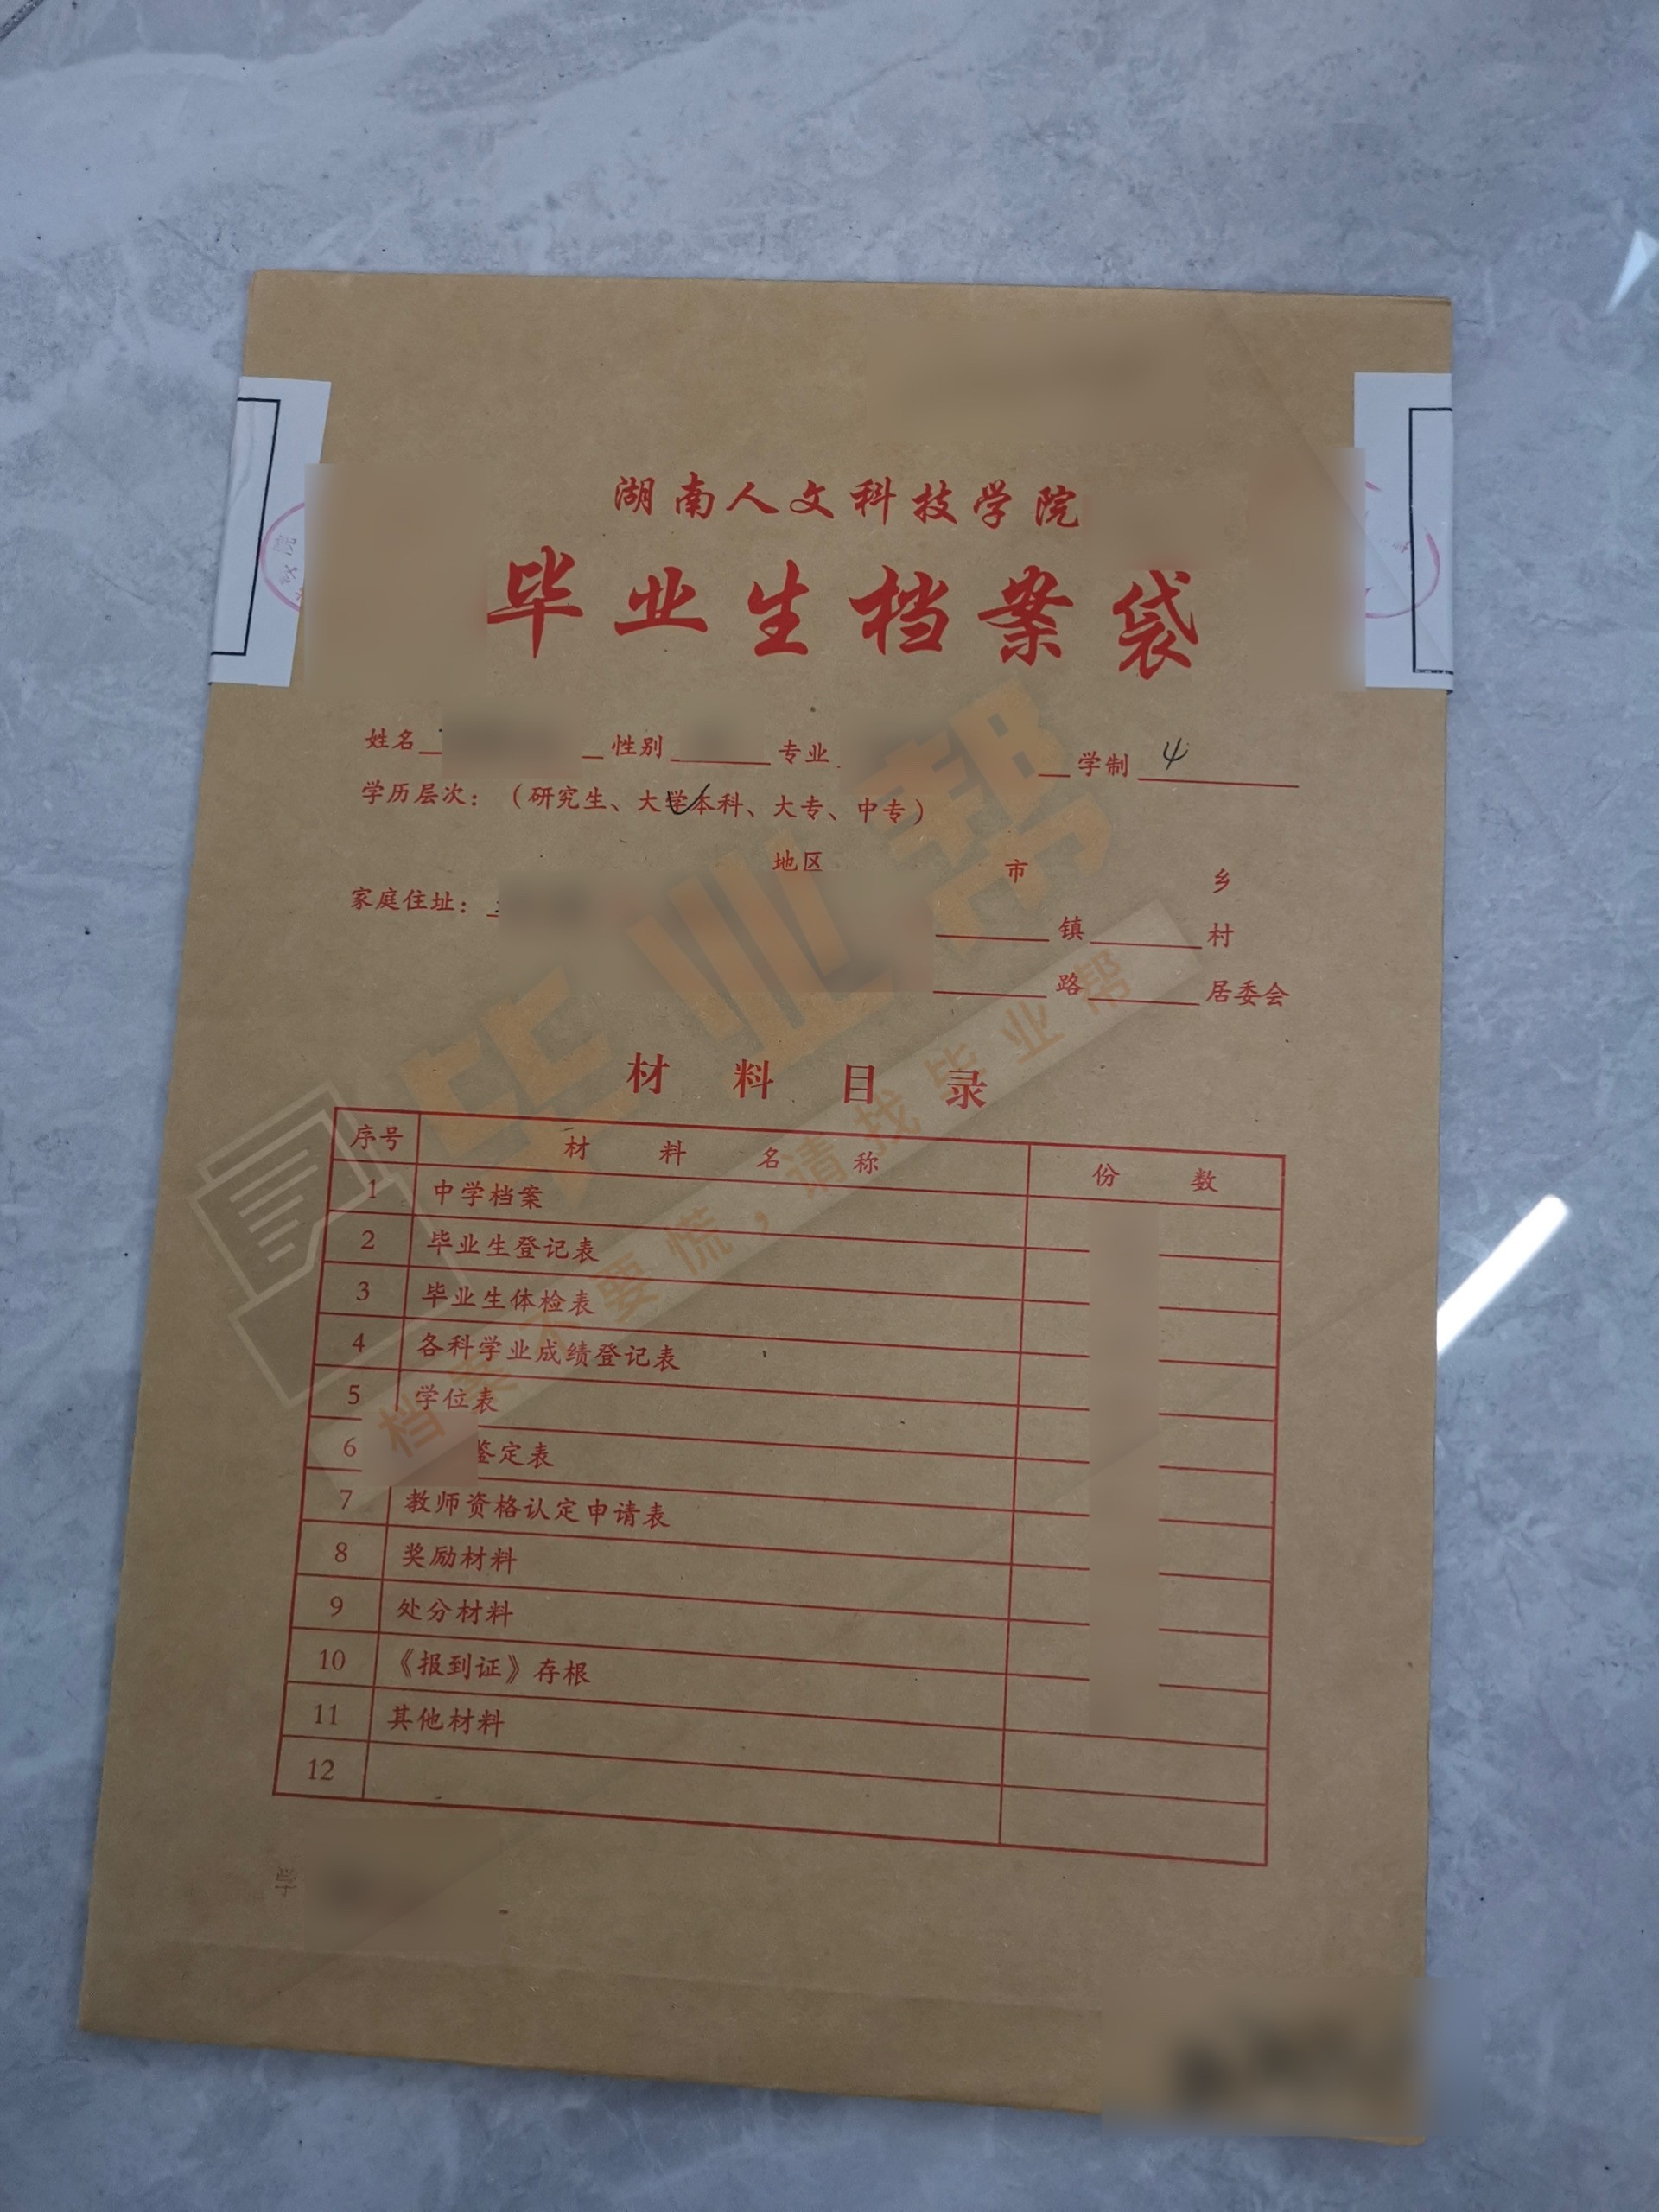 湖南人文科技学院
毕业生档案袋
姓名 性别 专业 学制 4
学历层次：（研究生、大学本科、大专、中专）
地区 市 乡
家庭住址： 镇 村
路 居委会
毕业帮
档案不要慌，请找毕业帮
材料目录
序号 材料名称 份数
1 中学档案
2 毕业生登记表
3 毕业生体检表
4 各科学业成绩登记表
5 学位表
6 鉴定表
7 教师资格认定申请表
8 奖励材料
9 处分材料
10 《报到证》存根
11 其他材料
12
学